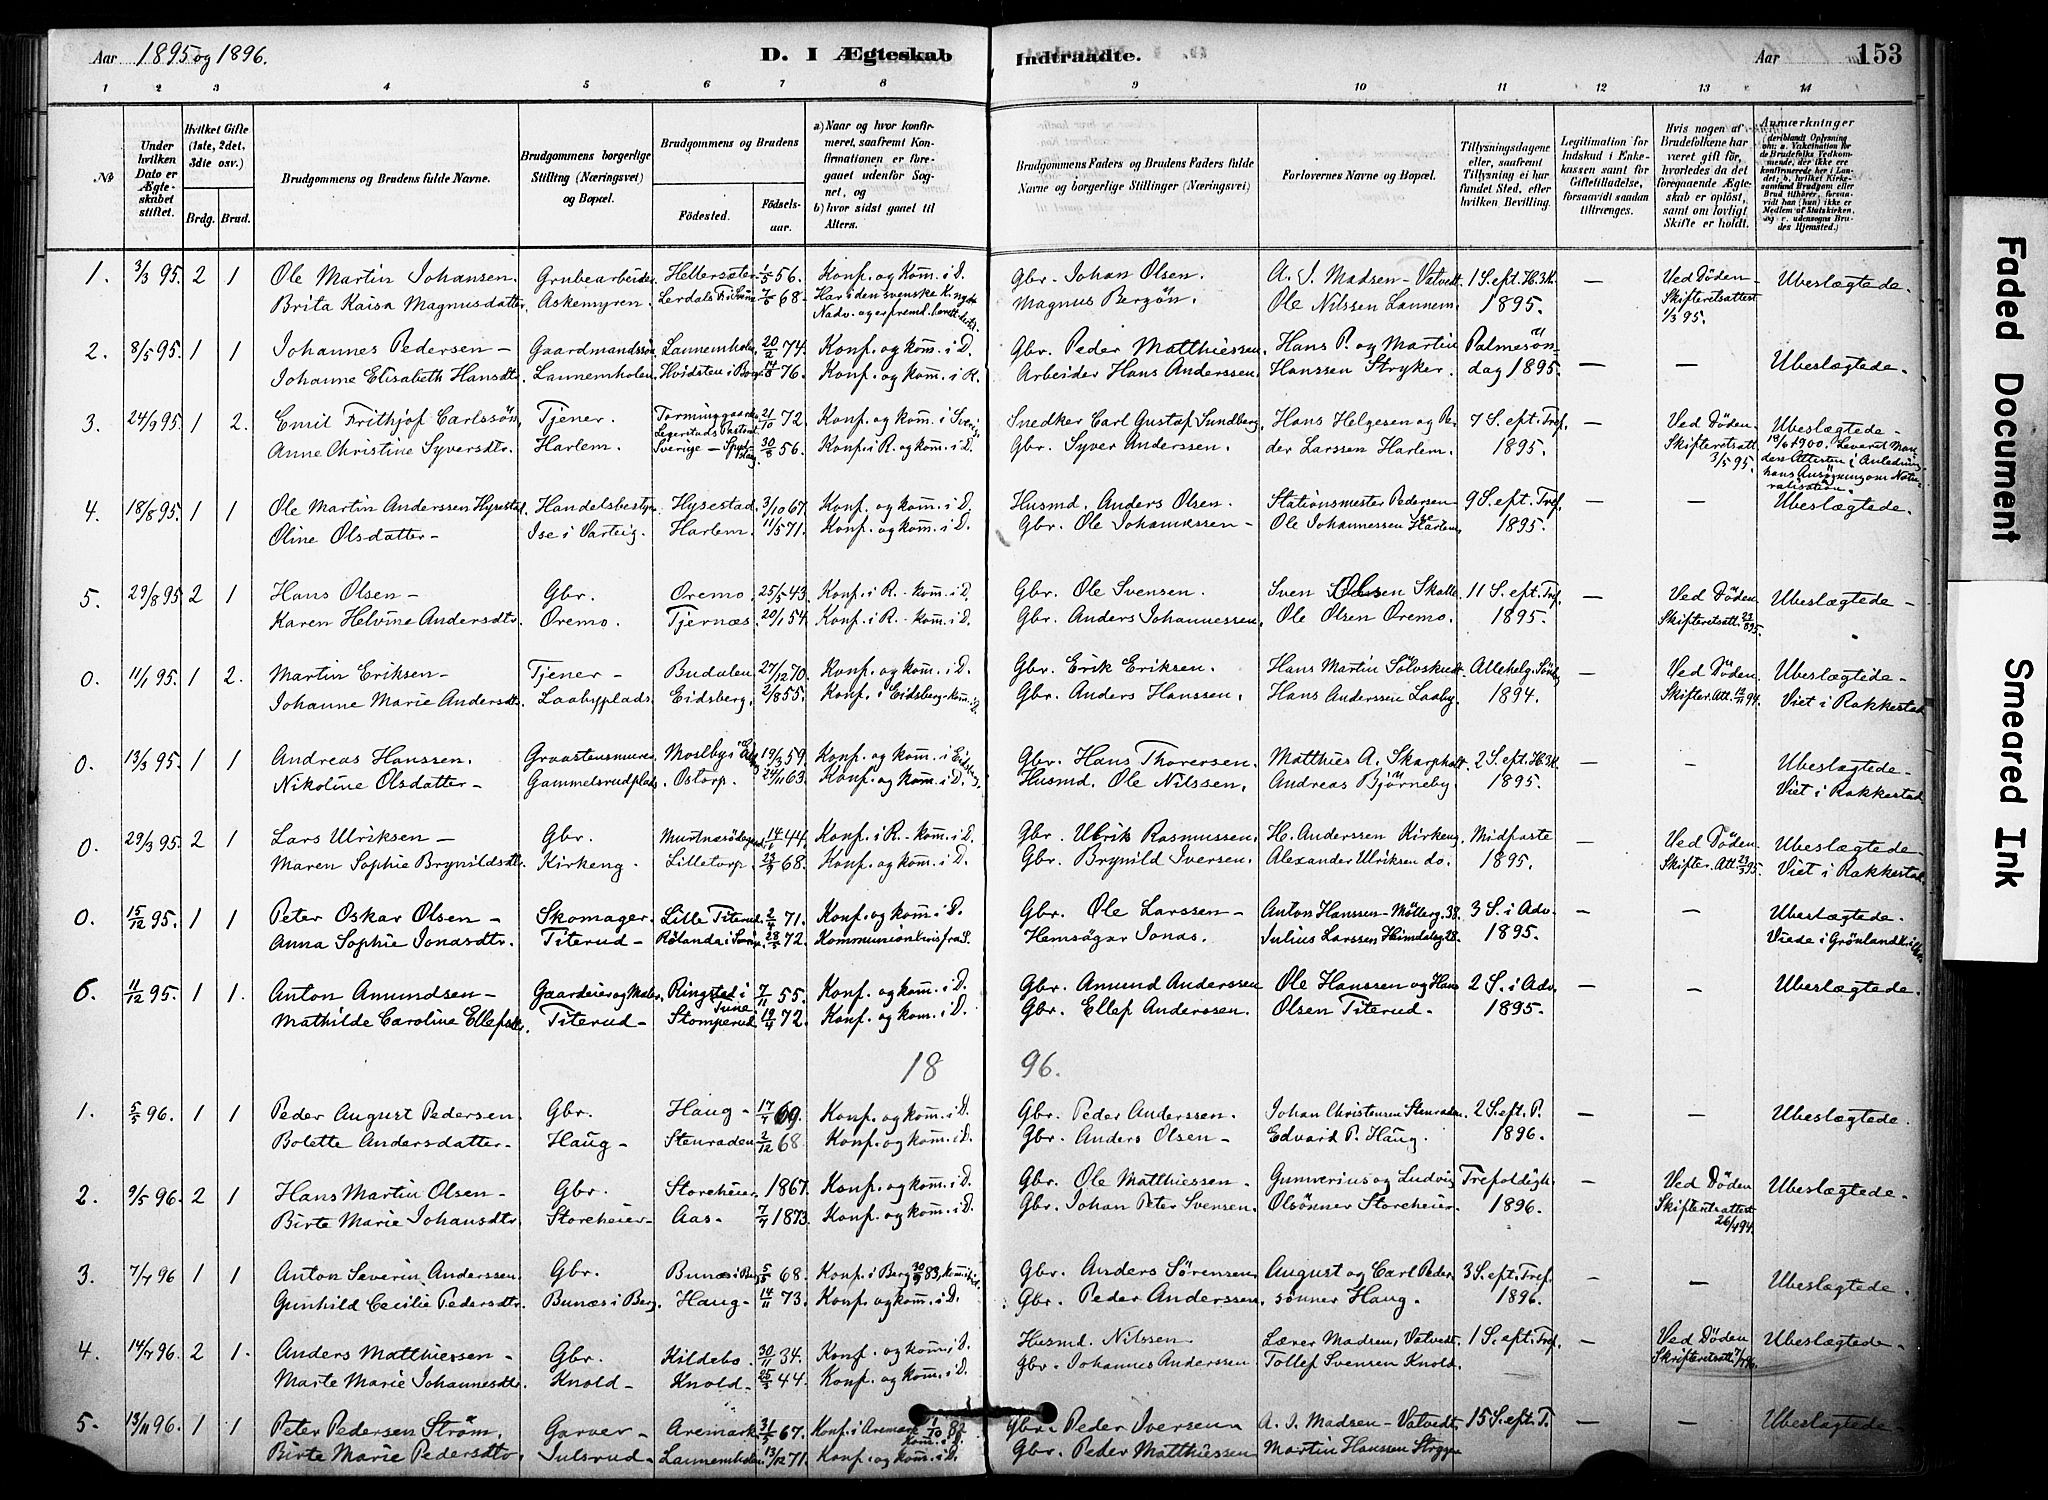 Aar 1895 og 1896.
D. I Ægteskab Indtraadte.
Aar 153
1 2 3 4 5 6 7 8 9 10 11 12 13 14
No
Under hvilken Dato er Ægteskabet stiftet.
Hvilket Gifte (1ste, 2det, 3die osv.)
Brdg. Brud.
Brudgommens og Brudens fulde Navne.
Brudgommens borgerlige Stilling (Næringsvei) og Bopæl.
Brudgommens og Brudens
Fødested. Fødselsaar.
a) Naar og hvor konfirmeret, saafremt Konfirmationen er foregaaet udenfor Sognet, og
b) hvor sidst gaaet til Alters.
Brudgommens Faders og Brudens Faders fulde Navne og borgerlige Stillinger (Næringsvei)
Forlovernes Navne og Bopæl.
Tillysningsdagene eller, saafremt Tillysning ei har fundet Sted, efter hvilken Bevilling.
Legitimation for Indskud i Enkekassen samt for Giftetilladelse, forsaavidt saadan tiltrænges.
Hvis nogen af Brudefolkene har været gift før, hvorledes da det foregaaende Ægteskab er opløst, samt om lovligt Skifte er holdt.
Anmærkninger
1. 3/3 95. 2 1 Ole Martin Johansen. Grubearbeider 1/5 56. Konf. og Kom. i D. Gbr. Johan Olsen. A. J. Madsen - Vatvedt 1 S. eft. H.3K. — Ved Døden Ubeslægtede.
Brita Kaisa Magnusdatter. Askemyren. 7/5 68. Har iden svenske Magnus Bergön. Ole Nilssen Lannem. 1895. Skifteretsattest 1/3 95.
2. 8/5 95. 1 1 Johannes Pedersen - Gaardmandssøn Lannemholen. 20/2 74. Konf. og kom. i D. Gbr. Peder Matthiessen. Hans P. og Martin Palmesön- — — Ubeslægtede.
Johanne Elisabeth Hansdtr. Lannemholen. Hvidsten i Borge. 14/8 76. Konf. og kom. i R. Arbeider Hans Anderssen. Hanssen Stryker. dag 1895.
3. 24/9 95. 1 2. Emil Frithjof Carlssön, Tjener. 21/10 72. Konf. og kom. i Sverig. Snedker Carl Gustaf Sundberg, Hans Helgesen og Pe- 7 S. eft. Tref. — Ved Døden Ubeslægtede -
Anne Christine Syversdtr. Harlem. Sverige - 30/8 56. Konf. i R. og kom. i D. Gbr. Syver Anderssen. der Larssen Harlem. 1895. Skifteretsatt. 3/5 95. 19/6 1900. Leveret Man- den Attesten i Anledning hans Ansøgning om Natu- ralisation.
4. 18/8 95. 1 1 Ole Martin Anderssen Hysestad. Handelsbestyr. Hysestad. 3/10 67. Konf. og kom. i D. Husmd. Anders Olsen. Stationsmester Pedersen 9 S. eft. Tref. — — Ubeslægtede.
Oline Olsdatter - Ise i Varteig. Harlem. 11/5 71. Konf. og kom. i D. Gbr. Ole Johannessen - Ole Johannessen Harlem. 1895.
5. 29/8 95. 2 1 Hans Olsen - Gbr. Oremo. 25/5 43. Konf. i R. - kom. i D. Gbr. Ole Svensen. Sven Olsen 11 S. eft. Tref. — Ved Døden Ubeslægtede -
Karen Helvine Andersdtr. Oremo. Tjernæs. 20/1 54. Konf. i R. - kom. i D. Gbr. Anders Johannessen. Ole Olsen Oremo. 1895. Skifteretsatt.
0. 11/1 95. 1 2. Martin Eriksen - Tjener - Budalen 27/12 70. Konf. og kom. i D. Gbr. Erik Eriksen. Hans Martin Sölvskudt. Allehelg. Sönd. — Ved Döden Ubeslægtede -
Johanne Marie Andersdtr. Laabyplads. Eidsberg. 2/8 55. Konf. i Eidsberg - kom. i D. Gbr. Anders Hanssen. Hans Anderssen Laaby. 1894. Skifter. Att. 12/11 94. Viet i Rakkestad
0. 13/3 95. 1 1 Andreas Hanssen. Graastensmurer 19/3 59. Konf. og kom. i Eidsberg. Gbr. Hans Thoresen. Matthies A. Skarpholt. 2 S. eft. H.3K. — — Ubeslægtede -
Nikoline Olsdatter - Gammelsrudplads. Ostorp. 24/11 63. Konf. og kom. i D. Husmd. Ole Nilssen. Andreas Bjørneby. 1895. Viet i Rakkestad
0. 29/3 95. 2 1 Lars Ulriksen - Gbr. 14/1 44. Konf. i R. - kom. i D. Gbr. Ulrik Rasmussen. H. Anderssen Kirkeng. Midfaste — Ved Døden Ubeslægtede -
Maren Sophie Brynildsdtr. Kirkeng. Lilletorp. 23/9 68. Konf. og kom. i D. Gbr. Brynild Iversen. Alexander Ulriksen do. 1895. Skifter. Att. 23/3 95. Viet i Rakkestad.
0. 15/12 95. 1 1 Peter Oskar Olsen - Skomager. Lille Titerud. 2/4 71. Konf. og kom. i D. Gbr. Ole Larssen - Anton Hanssen - Mötterg. 38. 3 S. i Adv. — — Ubeslægtede.
Anna Sophie Jonasdtr. Titerud - Rölanda i Sverig. 28/5 72. Kommunionbevis fra S. Hemsägar Jonas. Julius Larssen Heimdalsg 28. 1895. Viede i Grönland Kirke.
6. 11/12 95. 1 1. Anton Amundsen - Gaardeier og Maler, Ringstad i Tune 7/11 55. Konf. og kom. i D. Gbr. Amund Anderssen Ole Hanssen og Hans 2 S. i Adv. — — Ubeslægtede.
Mathilde Caroline Ellefsdtr. Titerud - Stomperud. 19/4 72. Konf. og kom. i D. Gbr. Ellef Anderssen. Olsen Titerud - 1895.
18 96.
1. 5/5 96. 1 1 Peder August Pedersen. Gbr. Haug - 17/4 69. Konf. og kom. i D. Gbr. Peder Anderssen. Johan Christensen Stenraden. 2 S. eft. P. — — Ubeslægtede.
Bolette Andersdatter - Haug - Stenraden 2/12 68. Konf. og kom. i D. Gbr. Anders Olsen - Edvard P. Haug. 1896.
2. 9/5 96. 2 1 Hans Martin Olsen - Gbr. Storeheier. 1867. Konf. og kom. i D. Gbr. Ole Matthiessen - Gunnerius og Ludvig Trefoldigh. — Ved Døden Ubeslægtede -
Birte Marie Johansdtr. Storeheier - Aas. 7/4 1873. Konf. og kom. i D. Gbr. Johan Peter Svensen. Olsönner Storeheier. 1896. Skifteretsattest 26/4 94.
3. 7/7 96 1 1 Anton Severin Anderssen. Gbr. Bunæs i Berg 5/5 68. Konf. i Berg 30/9 83, Gbr. Anders Sörensen. August og Carl Peder- 3 S. eft. Tref. — Ubeslægtede.
Gunhild Cecilie Pedersdtr. Bunæs i Berg. Haug - 14/11 73. Konf. og kom. i D. Gbr. Peder Anderssen. sønner Haug. 1896.
4. 14/7 96. 2 1. Anders Matthiessen - Gbr. Kildebo. 30/11 34. Konf. og kom. i D. Husmd. Nilssen. Lærer Madsen, Vatvedt. 1 S. eft. Tref. — Ved Døden Ubeslægtede -
Marte Marie Johannesdtr. Knold - Knold - 25/3 44. Konf. og kom. i D. Gbr. Johannes Anderssen Tollef Svensen Knold. Skifteretsatt.
5. 13/11 96. 1 1 Peter Pedersen Ström. Garver - Aremark 31/5 67. Konf. i Aremark 1/10 82 Kom. i D. Gbr. Peder Iversen A. J. Madsen - Vatvedt 15 S. eft. T. — — Ubeslægtede -
Birte Marie Pedersdtr. Julsrud - Lannemholen. 13/12 71. Konf. og kom. i D. Gbr. Peder Matthiessen Martin Hanssen
Faded Document
Smeared Ink